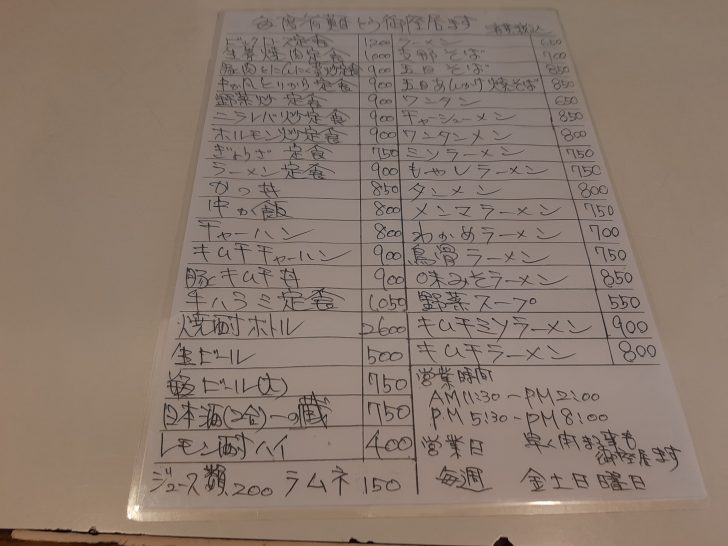 毎度有難とう御座居ます 消費税込
定食 1200
生姜焼肉定食 1000
豚肉とにんにく芽炒定食 900
定食 900
野菜炒定食 900
ニラレバ炒定食 900
ホルモン炒定食 900
ぎょうざ定食 750
ラーメン定食 900
かつ丼 850
中か飯 800
チャーハン 800
キムチチャーハン 900
豚キムチ丼 900
牛ハラミ定食 1050
焼酎ボトル 2600
生ビール 500
ビール(大) 750
日本酒(2合)一の蔵 750
レモン酎ハイ 400
ジュース類 200 ラムネ 150
ラーメン 650
支那そば 700
五目そば 850
五目あんかけ焼そば 850
ワンタン 650
チャーシューメン 850
ワンタンメン 800
ミソラーメン 750
もやしラーメン 750
タンメン 800
メンマラーメン 750
わかめラーメン 700
鳥骨ラーメン 750
味みそラーメン 850
野菜スープ 550
キムチミソラーメン 900
キムチラーメン 800
営業時間
AM11:30-PM2:00
PM5:30-PM8:00
営業日 早く閉まる事も
御座居ます
毎週 金土日曜日